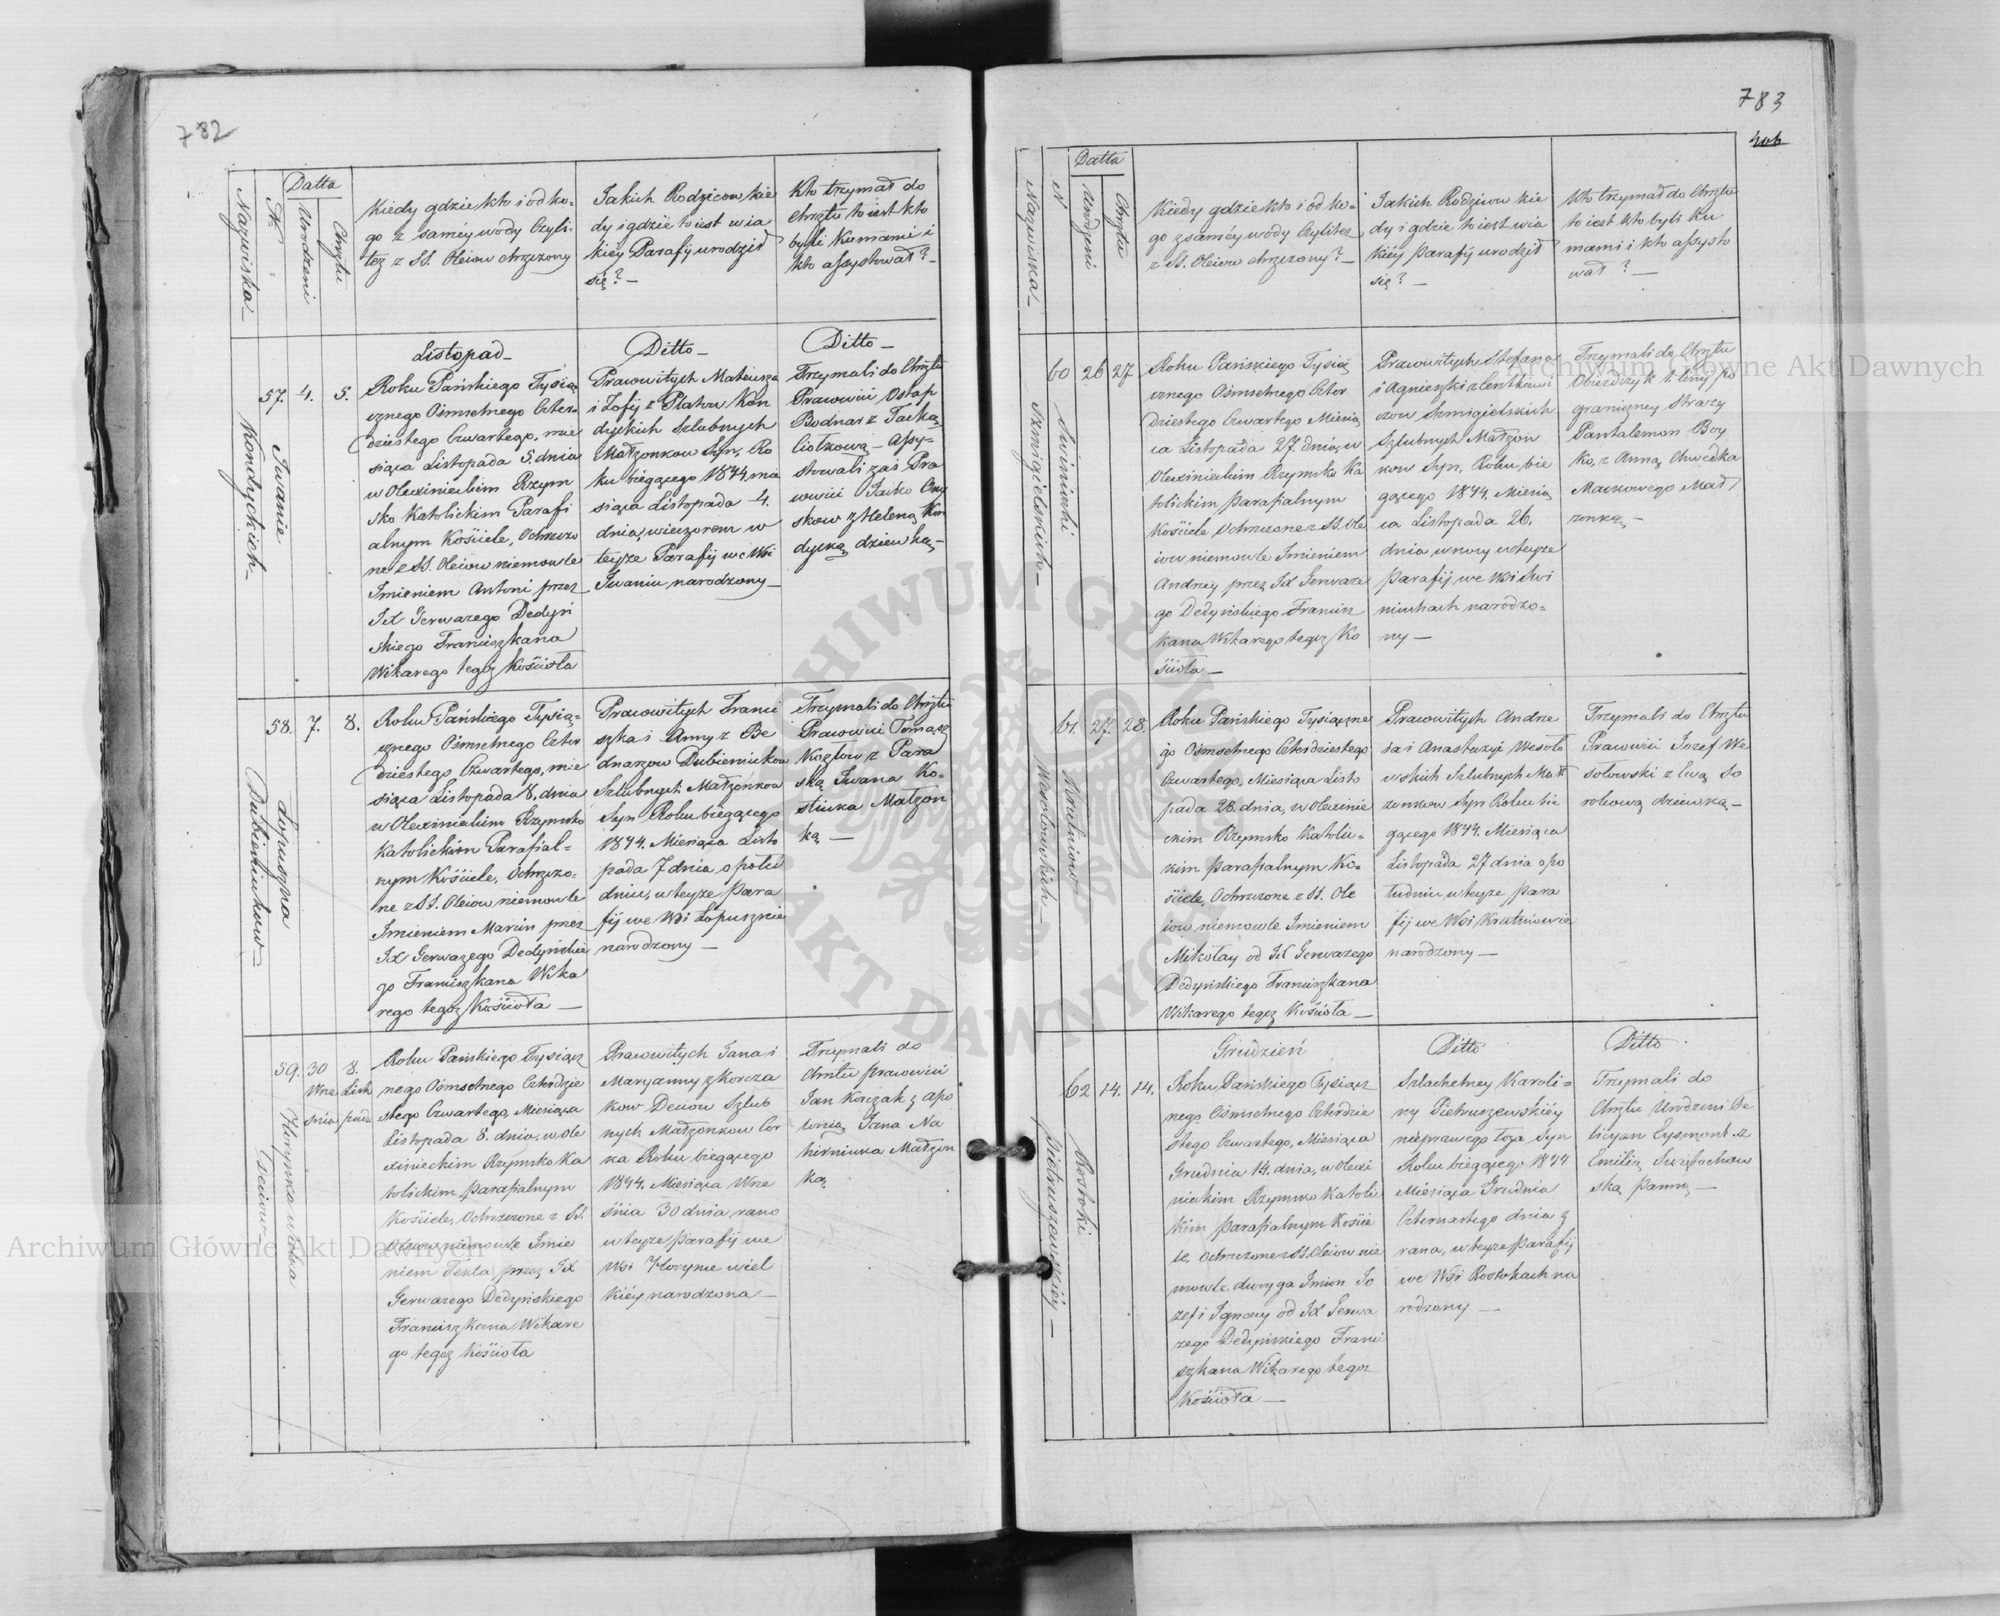 782
Nazwiska
N.
Datta
Urodzeni
Chrztu
Kiedy gdzie kto i od ko-
go z samey wody Czyli-
też z SS. Oleiow chrzczony
Jakich Rodziców kie
dy i gdzie to iest w ia
kiéy Parafij urodził
się? —
Kto trzymał do
Chrztu to iest kto
byli Kumami i
kto assystował? —
57.
4.
5.
Iwanie
Kondyckich
Listopad —
Roku Pańskiego Tysią-
cznego Ośmsetnego Czter-
dziestego Czwartego, mie
siąca Listopada 5. dnia
w Olexinieckim Rzym
sko Katolickim Parafi
alnym Kościele, Ochrzczo
ne z SS. Oleiow niemowle
Imieniem Antoni przez
Jx Gerwazego Dedyń
skiego Franciszkana
Wikarego tegoż Kościoła
Ditto —
Prawowitych Mateusza
i Zofij z Kon
dyckich Szlubnych
Małżonkow Syn, Ro
ku biegącego 1844 mie
siąca Listopada 4.
dnia, wieczorem w
teyże Parafij we Wsi
Iwaniu narodzony —
Ditto —
Trzymali do Chrztu
Prawowici Ostap
Bodnar z
— Assy-
stowali zaś Pra
wowici
z Heleną Kon
dycką dziewką —
58.
7.
8.
Łopuszna
Dubieniukow —
Roku Pańskiego Tysią-
cznego Ośmsetnego Czter
dziestego, Czwartego, mie
siąca Listopada 8. dnia
w Olexinieckim Rzymsko
Katolickim Parafial-
nym Kościele, Ochrzczo-
ne z SS. Oleiow niemowle
Imieniem Marcin przez
Jx Gerwazego Dedyńskie
go Franciszkana Wika
rego tegoż Kościoła —
Prawowitych Franci
szka i Anny z Be
dnarzow Dubieniukow
Szlubnych Małżonkow
Syn Roku biegącego
1844. Miesiąca Listo
pada 7 dnia o połu
dniu, w teyże Para
fij we Wsi Łopusznie
narodzony —
Trzymali do Chrztu
Prawowici Tomasz
Kozłow z Para
ską Iwana Ko-
stiuka Małżon
ką —
59.
30
Wrze
śnia
8.
Listo
pada
Horynka wielka
Deciow
Roku Pańskiego Tysiącz
nego Ośmsetnego Czterdzie
stego Czwartego, Miesiąca
Listopada 8. dnia, w Ole
xinieckim Rzymsko Ka
tolickim parafialnym
Kościele, Ochrzczone z SS.
Oleiow niemowle Imie
niem Tekla przez Jx
Gerwazego Dedyńskiego
Franciszkana Wikare
go tegoż Kościoła
Prawowitych Jana i
Maryanny z Korcza
kow Deciow Szlub
nych Małżonkow Cor
ka Roku biegącego
1844. Miesiąca Wrze
śnia 30 dnia, rano
w teyże parafij we
Wsi Horynce wiel
kiéy narodzona —
Trzymali do
Chrztu prawowici
Jan Korczak z Apo
lonią Jana Na
hirniuka Małżon
ką
783
406
Nazwiska —
N
Datta
Urodzeni
Chrztu
Kiedy gdzie kto i od ko-
go z saméy wody Czyliteż
z SS. Oleiow chrzczony? —
Jakich Rodziców kie
dy i gdzie to iest w ia
kiéy parafij urodził
się? —
Kto trzymał do Chrztu
to iest kto byli Ku
mami i kto assysto
wał? —
60
26
27
Świniuchi
Szmigielskich —
Roku Pańskiego Tysią
cznego Ośmsetnego Czter
dziestego Czwartego Miesią
ca Listopada 27. dnia, w
Olexinieckim Rzymsko Ka
tolickim parafialnym
Kościele Ochrzczone z SS. Ole
iow niemowle Imieniem
Andrzey przez Jx Gerwaze
go Dedyńskiego Francisz
kana Wikarego tegoż Ko
ścioła —
Prawowitych Stefana
i Agnieszki
Szmigielskich
Szlubnych Małżon
kow Syn, Roku bie
gącego 1844. Miesią
ca Listopada 26.
dnia w nocy w teyże
parafij we Wsi Świ
niuchach narodzo-
ny —
Trzymali do Chrztu
Obiezdczyk po
graniczney Straży
Pantalemon Boy
ko, z Anną Chwedka
Mackowego Mał
żonką —
61.
27.
28.
Krutniow
Wesołowskich
Roku Pańskiego Tysiączne
go Ośmsetnego Czterdziestego
Czwartego, Miesiąca Listo
pada 28. dnia, w Olexinie
ckim Rzymsko Katolic-
kim parafialnym Ko-
ściele, Ochrzczone z SS. Ole
iow niemowle Imieniem
Mikołay od Jx Gerwazego
Dedyńskiego Franciszkana
Wikarego tegoż Kościoła —
Prawowitych Andrze
ia i Anastazyi Wesoło
wskich Szlubnych Mał
żonkow Syn Roku bie
gącego 1844. Miesiąca
Listopada 27 dnia o po
łudniu, w teyże para
fij we Wsi Krutniowie
narodzony —
Trzymali do Chrztu
Prawowici Jozef We
sołowski z Ewą So
rokową dziewką —
62
14.
14.
Rostoki
Pietruszewskiéy —
Grudzień
Roku Pańskiego Tysiącz
nego Ośmsetnego Czterdzie
stego Czwartego, Miesiąca
Grudnia 14. dnia, w Olexi
nieckim Rzymsko Katolic
kim parafialnym Koście
le, Ochrzczone z SS. Oleiow nie
mowle dwoyga Imion Jo
zef i Ignacy od Jx Gerwa
zego Dedyńskiego Franci
szkana Wikarego tegoż
Kościoła —
Ditto
Szlachetney Karoli-
ny Pietruszewskiéy
nieprawego łoża Syn
Roku biegącego 1844
Miesiąca Grudnia
Czternastego dnia z
rana, w teyże parafij
we Wsi Rostokach na
rodzony —
Ditto
Trzymali do
Chrztu Urodzeni Fe
licyan Eysmont z
Emilią Swiętochow
ską panną —
Archiwum Główne Akt Dawnych
Archiwum Główne Akt Dawnych
ARCHIWUM GŁÓWNE AKT DAWNYCH